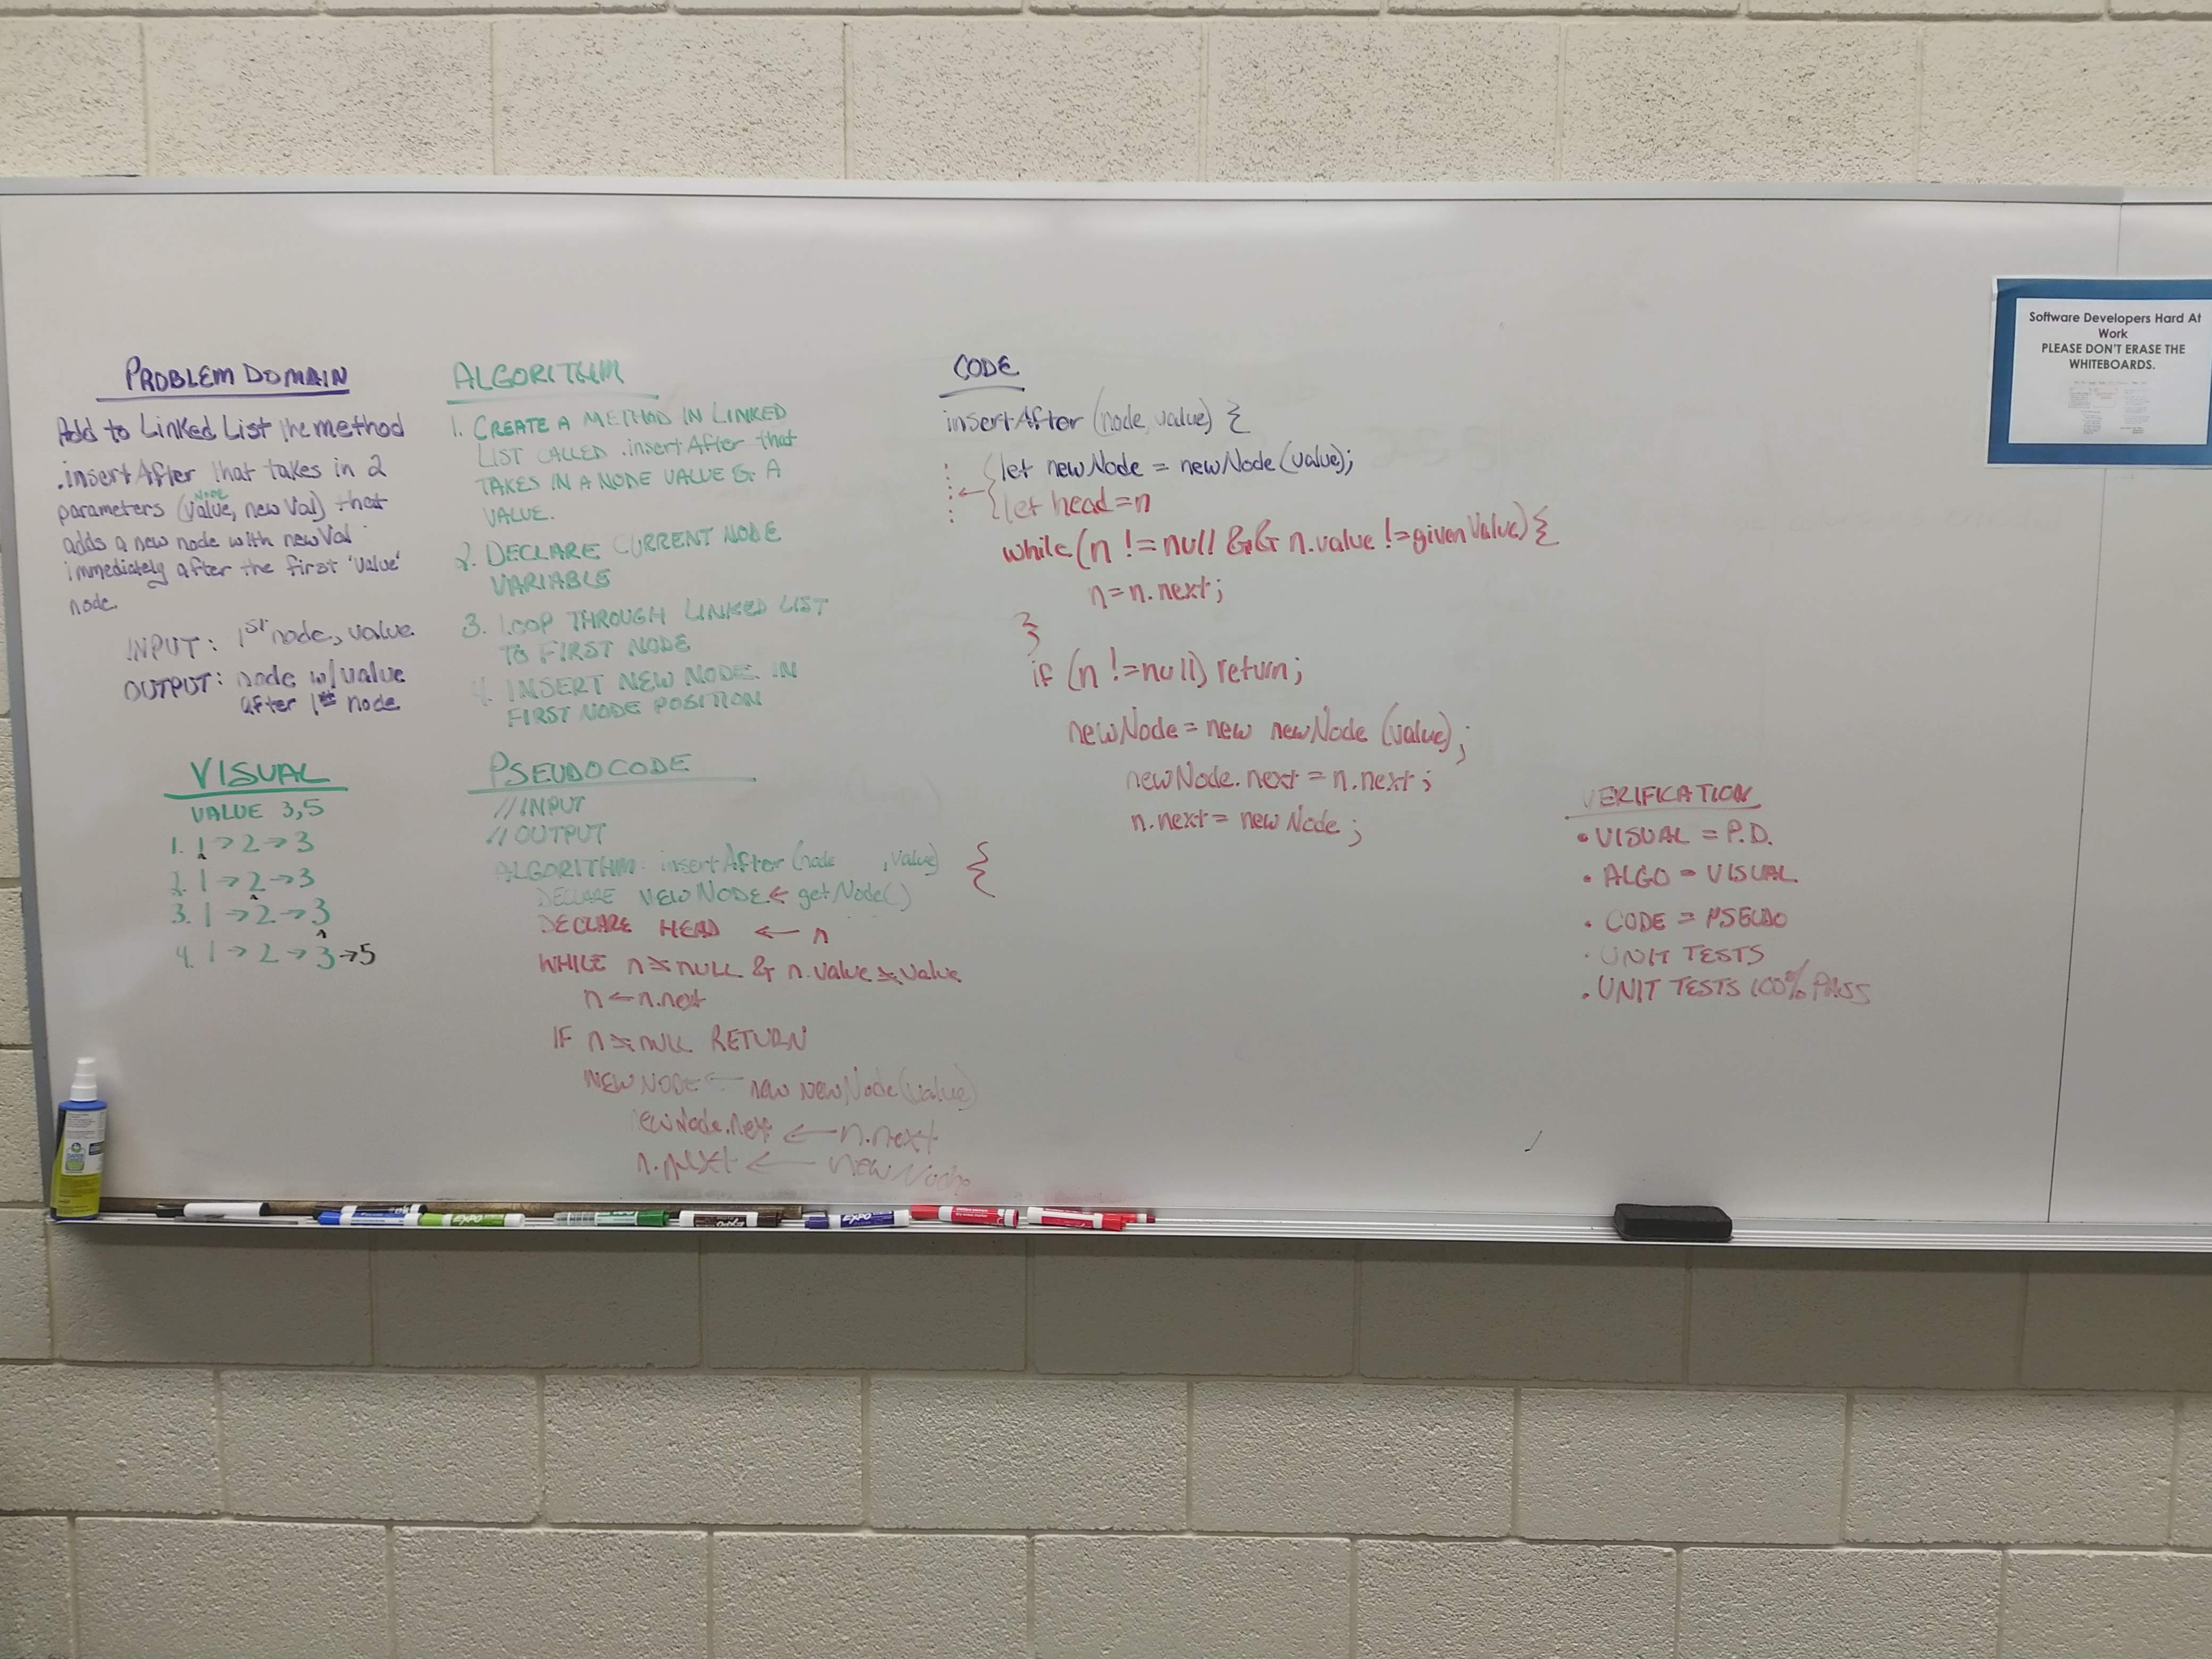 PROBLEM DOMAIN
Add to Linked List the method
.insertAfter that takes in 2
NODE
parameters (value, newVal) that
adds a new node with newVal
immediately after the first 'value'
node.
INPUT: 1st node, value
OUTPUT: node w/value
after 1st node
VISUAL
VALUE 3,5
1. 1→2→3
2. 1→2→3
3. 1→2→3
4. 1→2→3→5
ALGORITHM
1. CREATE A METHOD IN LINKED
LIST CALLED .insertAfter that
TAKES IN A NODE VALUE & A
VALUE.
2. DECLARE CURRENT NODE
VARIABLE
3. LOOP THROUGH LINKED LIST
TO FIRST NODE
4. INSERT NEW NODE IN
FIRST NODE POSITION
PSEUDOCODE
//INPUT
//OUTPUT
ALGORITHM: insertAfter(node ,value) {
DECLARE NEWNODE ← getNode()
DECLARE HEAD ← n
WHILE n ≠ NULL & n.value ≠ value
n ← n.next
IF n ≠ NULL RETURN
NEWNODE ← new newNode(value)
ewNode.next ← n.next
n.next ← newNode
CODE
insertAfter(node, value) {
let newNode = newNode(value);
let head = n
while(n != null && n.value != givenValue) {
n = n.next;
}
if (n != null) return;
newNode = new newNode (value);
newNode.next = n.next;
n.next = newNode;
VERIFICATION
• VISUAL = P.D.
• ALGO = VISUAL
• CODE = PSEUDO
• UNIT TESTS
• UNIT TESTS 100% PASS
Software Developers Hard At
Work
PLEASE DON'T ERASE THE
WHITEBOARDS.
EXPO
EXPO
EXPO